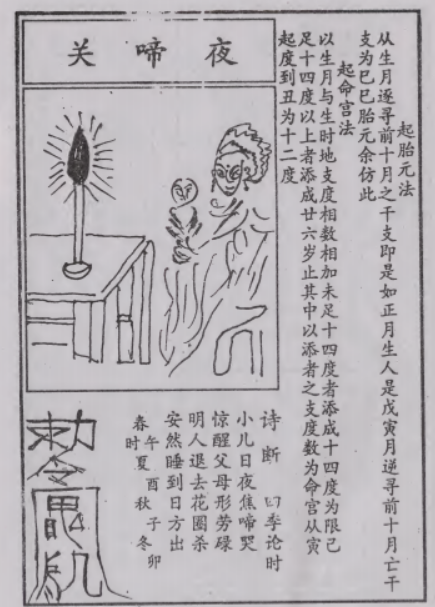 起胎元法
从生月逐寻前十月之干支即是如正月生人是戊寅月逆寻前十月亡干
支为巳巳胎元余仿此
起命宫法
以生月与生时地支度相数相加未足十四度者添成十四度为限己
足十四度以上者添成廿六岁止其中以添者之支度数为命宫从寅
起度到丑为十二度
夜啼关
诗断 四季论时
小儿日夜焦啼哭
惊醒父母形劳碌
明人退去花圈杀
安然睡到日方出
午酉子卯
春时夏秋冬
勅令